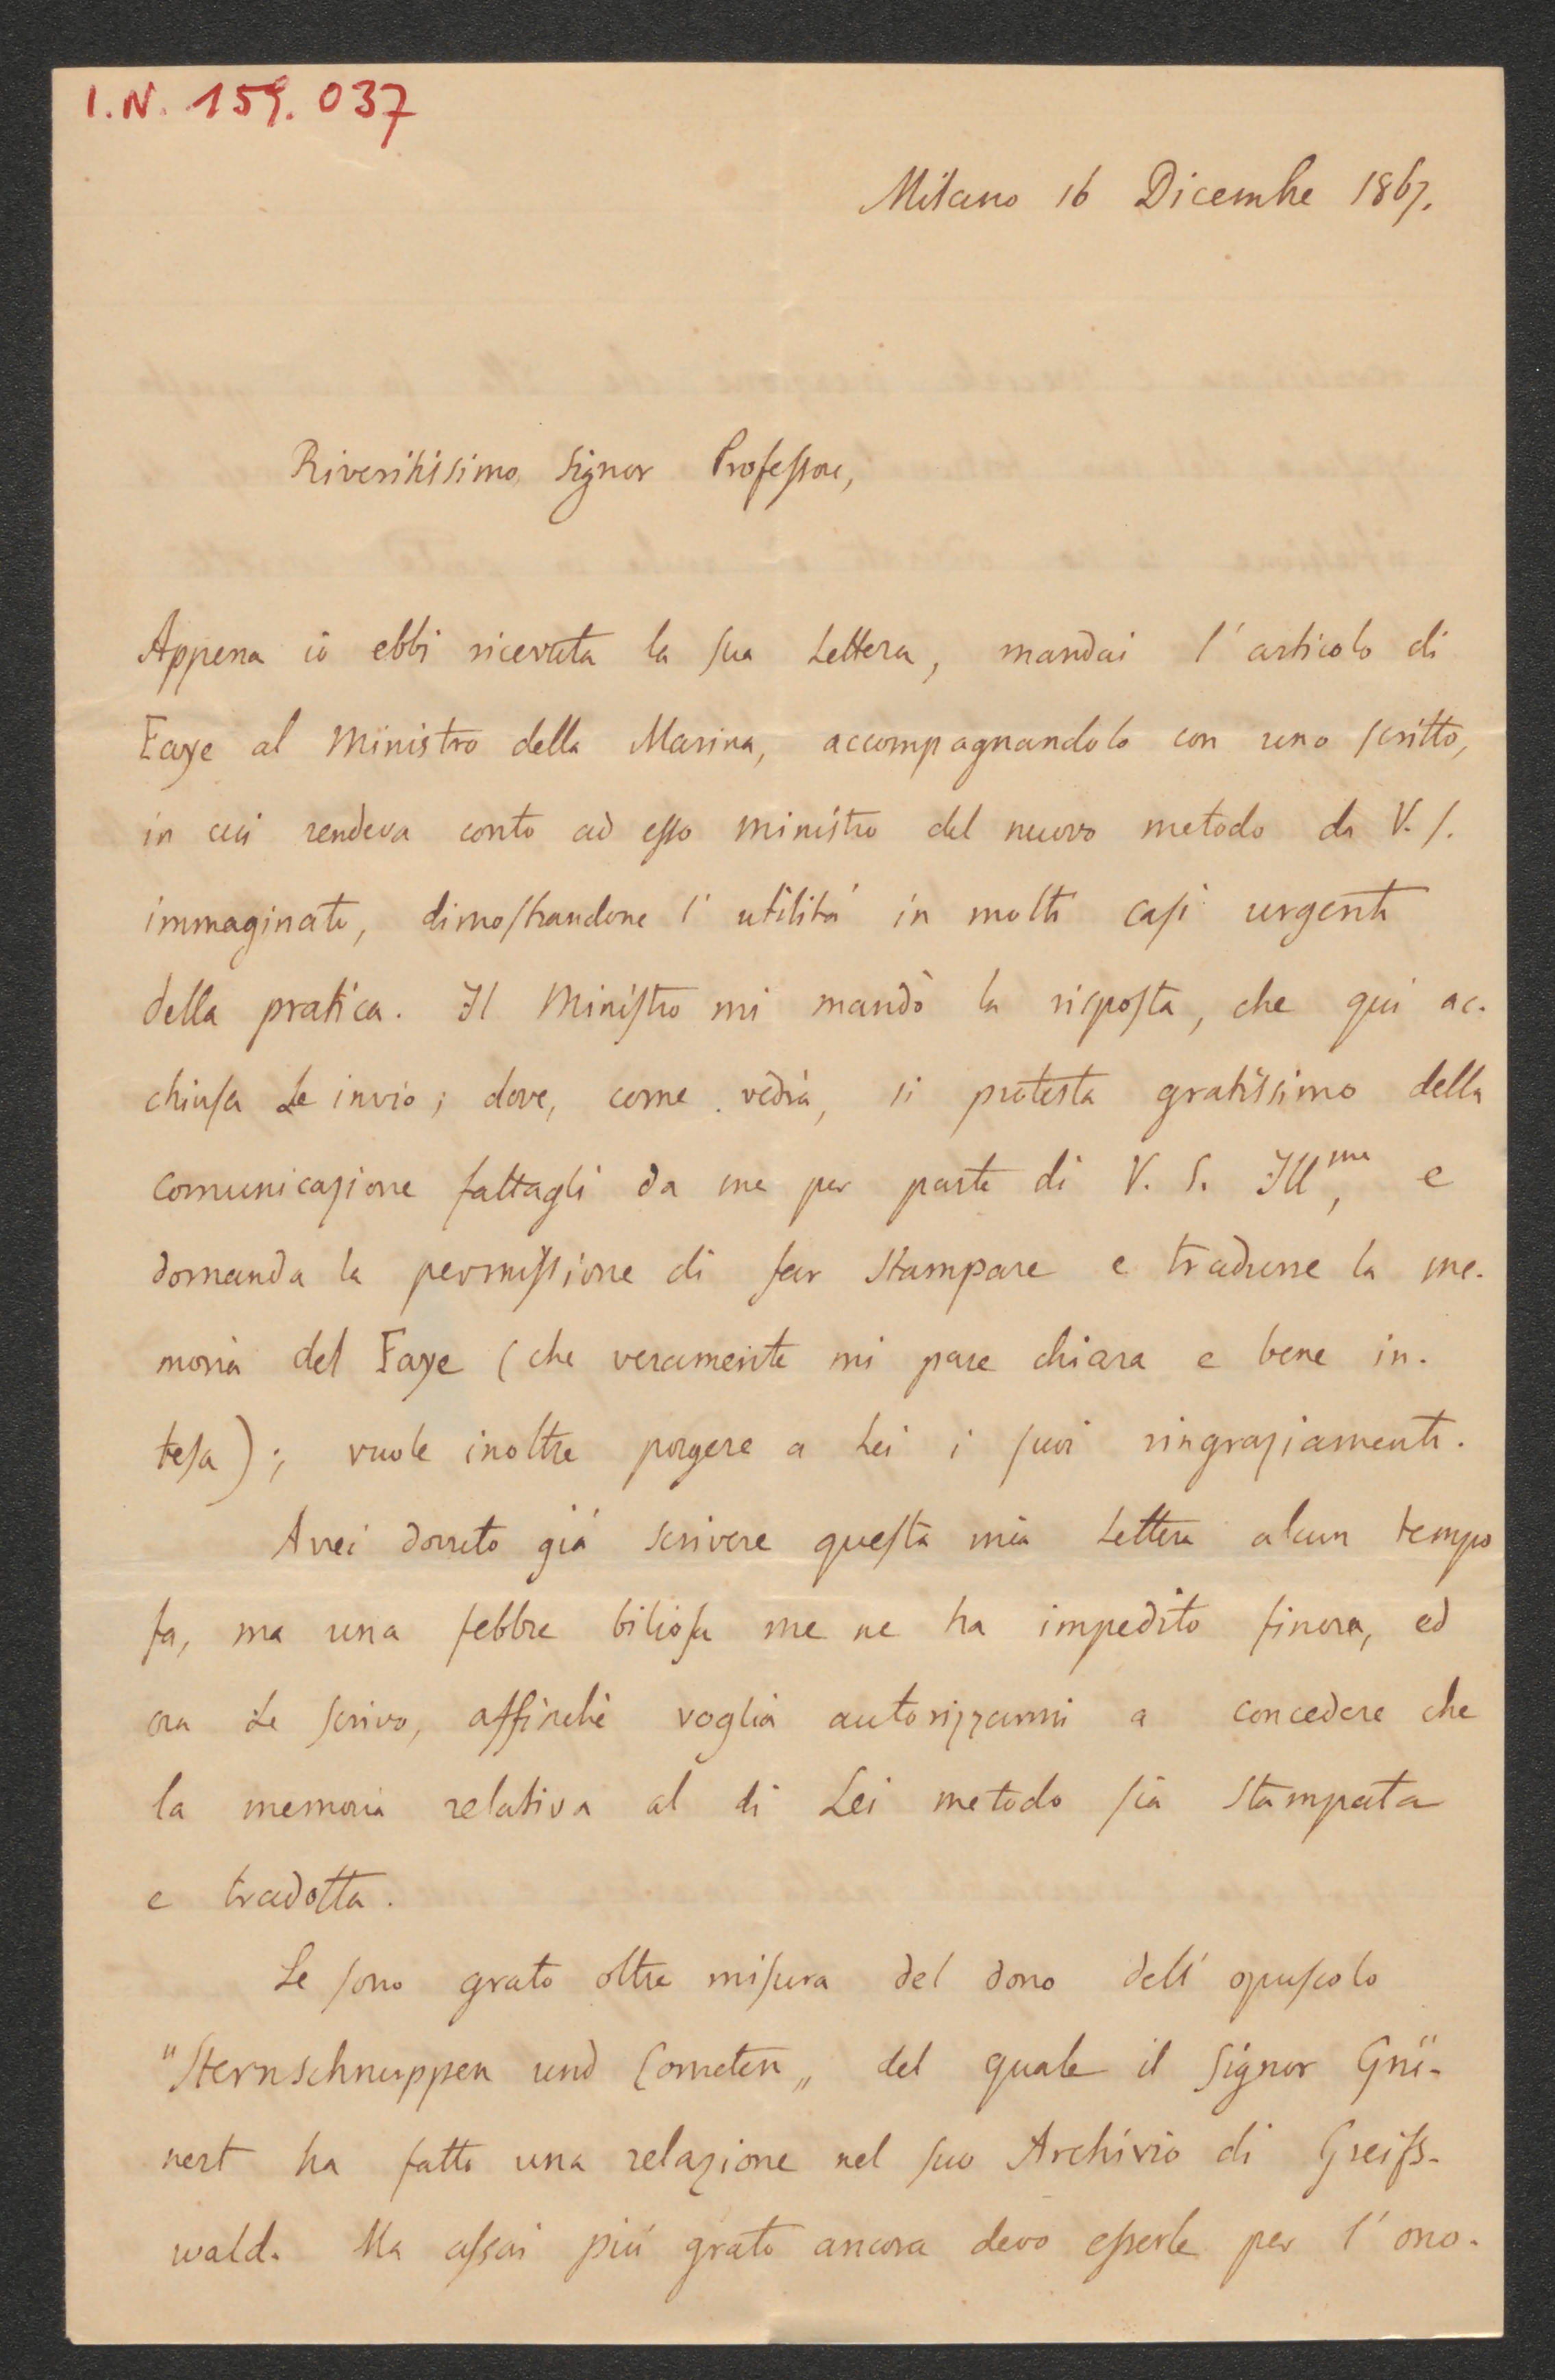 I.N. 159.037
Milano 16 Dicembre 1867.
Riveritissimo Signor Professore,
Appena io ebbi ricevuta la sua Lettera, mandai l'articolo di
Faye al Ministro della Marina, accompagnandolo con uno scritto,
in cui rendeva conto ad esso Ministro del nuovo metodo da V. S.
immaginato, dimostrandone l'utilità in molti casi urgenti
della pratica. Il Ministro mi mandò la risposta, che qui ac-
chiusa Le invio; dove, come vedrà, si protesta gratissimo della
comunicazione fattagli da me per parte di V. S. Ill.ma, e
domanda la permissione di far stampare e tradurre la me-
moria del Faye (che veramente mi pare chiara e bene in-
tesa); vuole inoltre porgere a Lei i suoi ringraziamenti.
Avrei dovuto già scrivere questa mia Lettera alcun tempo
fa, ma una febbre biliosa me ne ha impedito finora, ed
ora Le scrivo, affinchè voglia autorizzarmi a concedere che
la memoria relativa al di Lei metodo sia stampata
e tradotta.
Le sono grato oltre misura del dono dell'opuscolo
"Sternschnuppen und Cometen„ del quale il Signor Grü-
nert ha fatto una relazione nel suo Archivio di Greifs-
wald. Ma assai più grato ancora devo esserle per l'ono-